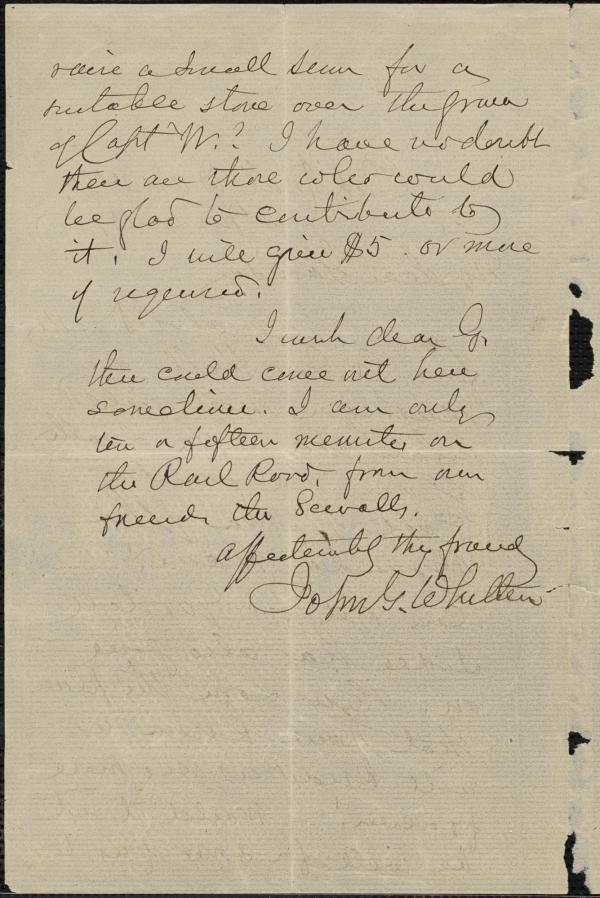 raise a small sum for a
suitable stone over the grave
of Capt W.? I have no doubt
there are those who would
be glad to contribute to
it. I will give $5. or more
if required.
I wish dear G.
thee could come out here
sometime. I am only
ten or fifteen minutes on
the Rail Road, from our
friends the Sewalls.
affectionately thy friend
John G. Whittier